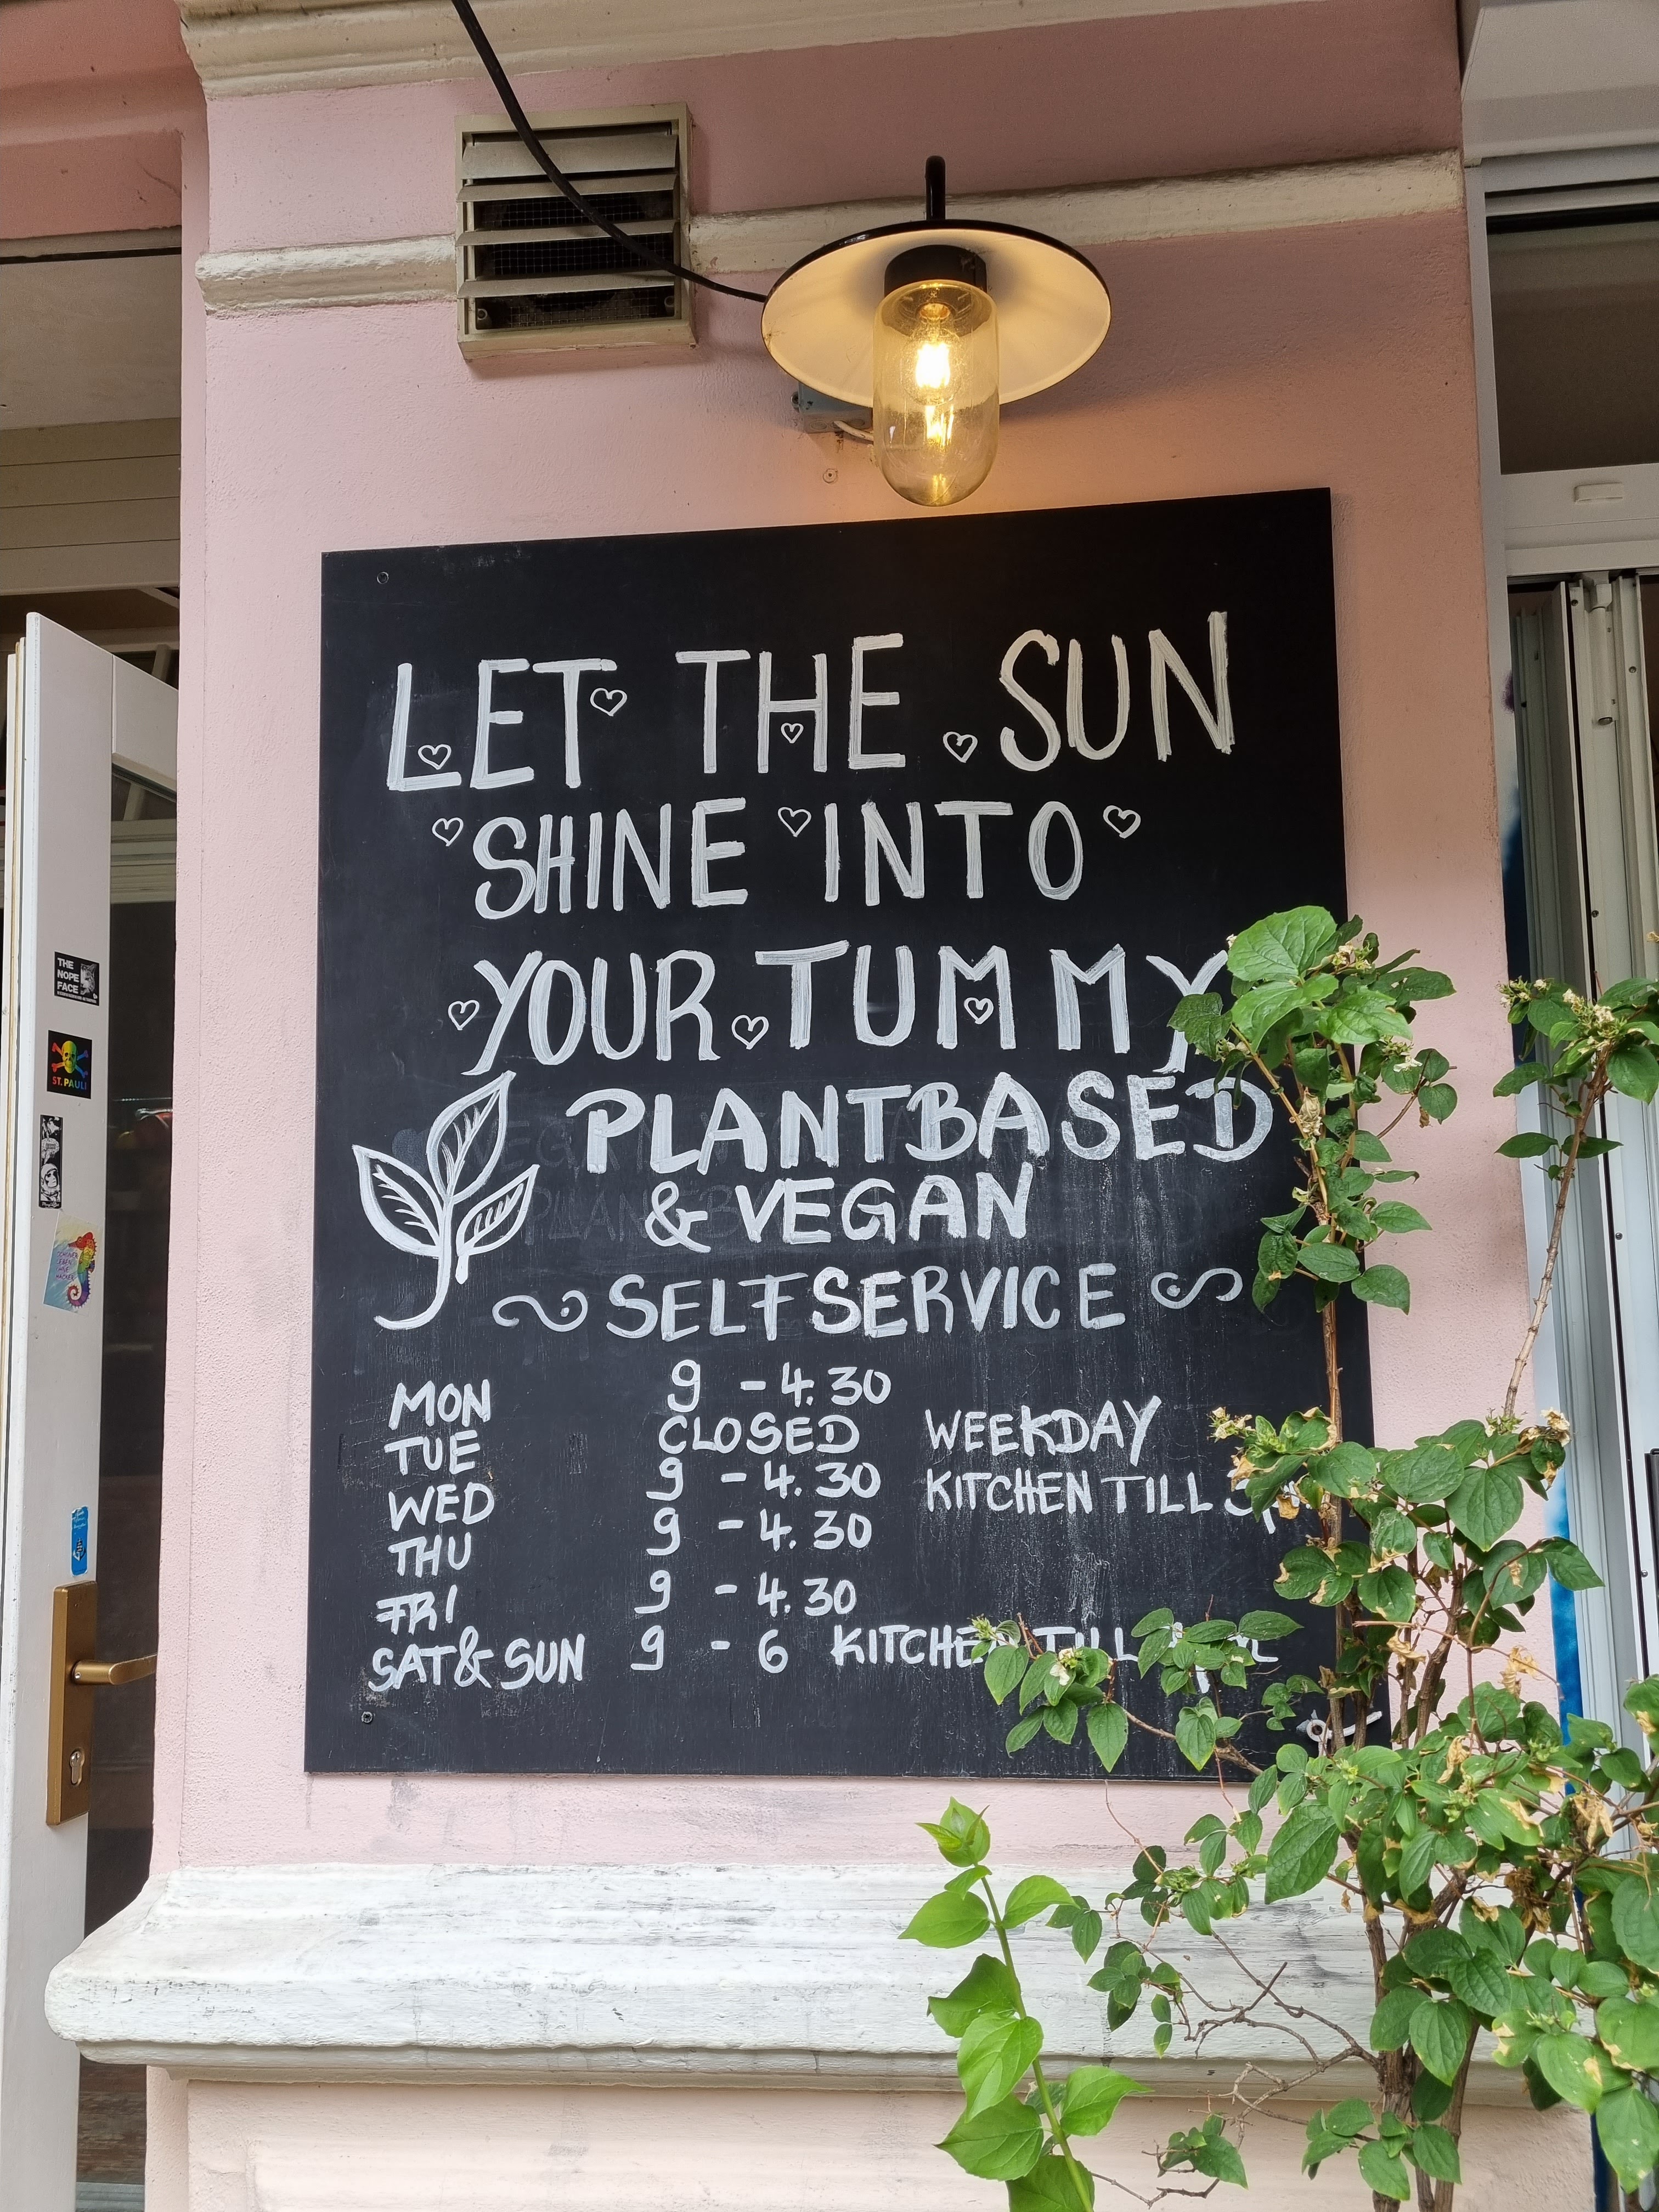 LET THE SUN
SHINE INTO
YOUR TUMMY
PLANTBASED
& VEGAN
SELFSERVICE
MON 9 - 4.30
TUE CLOSED
WED 9 - 4.30
THU 9 - 4.30
FRI 9 - 4.30
SAT & SUN 9 - 6 KITCHEN TILL
WEEKDAY
KITCHEN TILL
THE
NOPE
FACE
ST. PAULI